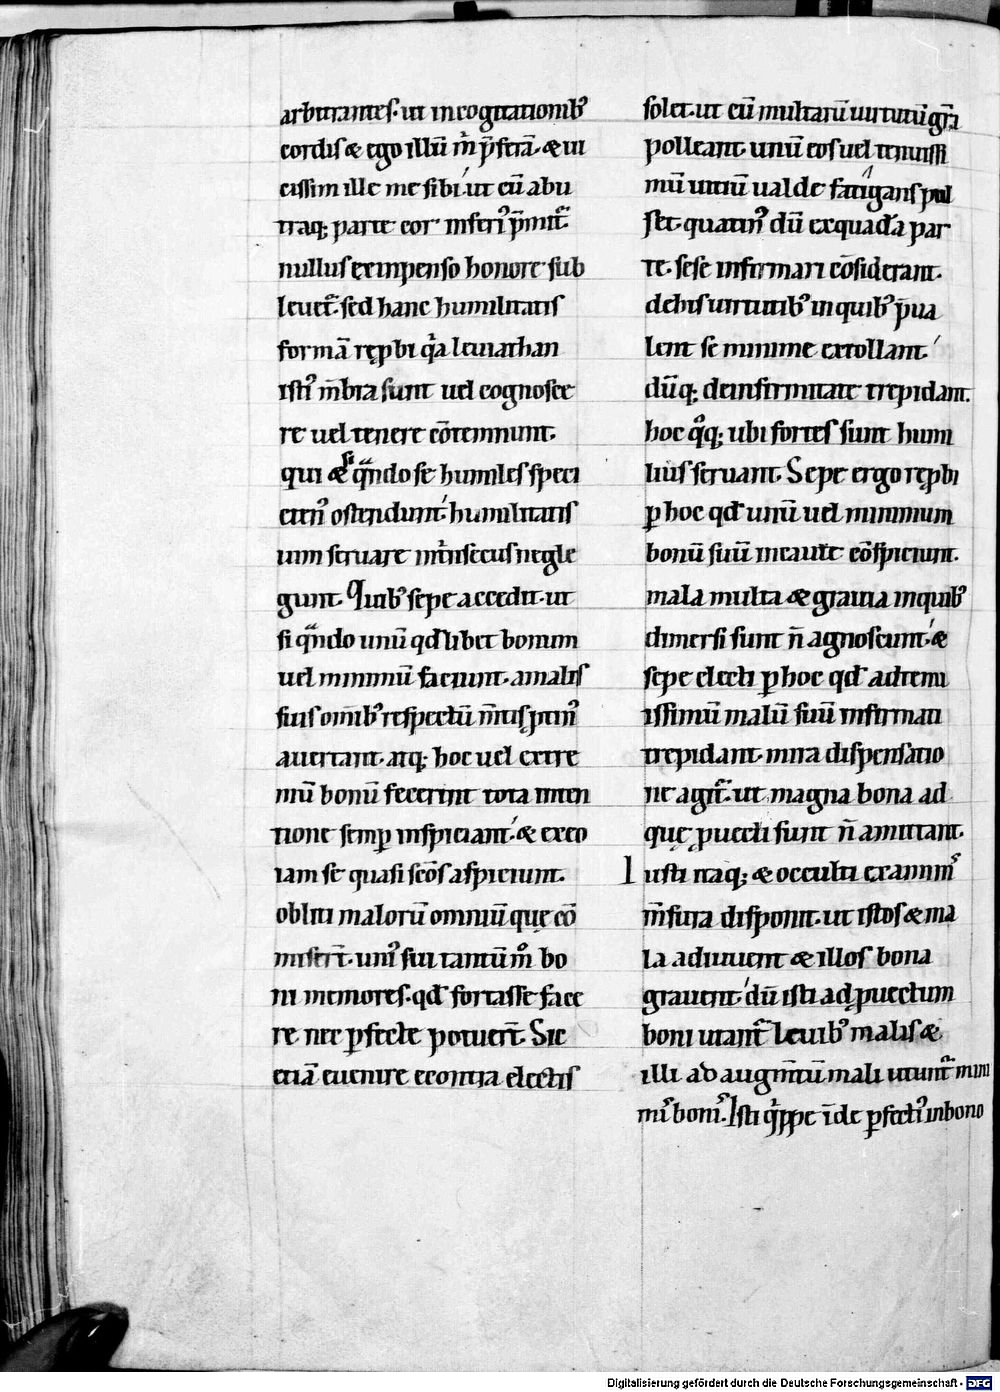 arbitrantes. ut in cogitationib᷒
cordis & ego illū m̄ p̄ferā. & ui
cissim ille me sibi ut cū abu
traq; parte cor inferi᷒ p̄mit᷑.
nullus ex inpenso honore sub
leuet᷑. sed hanc humilitatis
formā rępbi qͥa leuiathan
isti᷒ mb̄ra sunt uel cognosce
re uel tenere cōtemnunt.
qui & si qn̄do se humiles speci
eten᷒ ostendunt. humilitatis
uim seruare int̄nsecus negle
gunt. Quib᷒ sepe accedit. ut
si qn̄do unū qd̄libet bonum
uel minimū faciunt. a malis
suis omīb᷒ respectū m̄tis ptin᷒
auertant. atq; hoc uel extre
mū bonū fecerint tota inten
tione semp̱ inspiciant. & ex eo
iam se quasi sc̄os aspiciunt.
obliti malorū omniū quę cō
miser̄t. uni᷒ sui tantūm᷒ bo
ni memores. qd̄ fortasse face
re nec p̱fecte potuer̄t. Sic
etiā euenire econtra electis
solet. ut cū multarū uirtutū gr̄a
polleant unū eos uel tenuissi
mū uitiū ualde fatigans pul
set. quatin᷒ dū ex quadā par
te. sese infirmari cōsiderant.
de his uirtutib᷒ in quib᷒ p̄ua
lent se minime extollant.
dūq; de infirmitate trepidant.
hoc qͦq; ubi fortes sunt humi
lius seruant. Sepe ergo rępbi
p̱ hoc qd̄ unū uel minimum
bonū suū incaute cōspiciunt.
mala multa & grauia in quib᷒
dimersi sunt n̄ agnoscunt. &
sepe electi p̱ hoc qd̄ ad tenu
issimū malū suū infirmati
trepidant. mira dispensatio
ne agit᷑. ut magna bona ad
quę puecti sunt n̄ amittant.
Iusti itaq; & occulti examini᷒
m̄sura disponit. ut istos & ma
la adiuuent & illos bona
grauent. dū isti ad puectum
boni utant᷑ leuib᷒ malis &
illi ad augm̄tū mali utunt᷑ mini
mi᷒ boni᷒. Isti qͥppe īde p̱fecti᷒ in bono
Digitalisierung gefördert durch die Deutsche Forschungsgemeinschaft - DFG